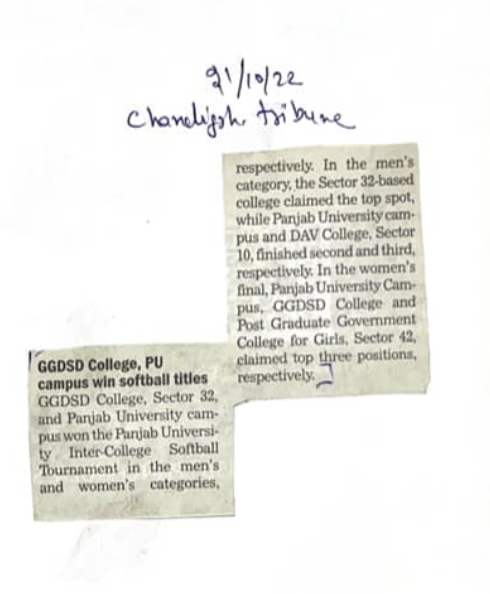 21/10/22
Chandigrh tribune
GGDSD College, PU
campus win softball titles
GGDSD College, Sector 32,
and Panjab University cam-
pus won the Panjab Universi-
ty Inter-College Softball
Tournament in the men's
and women's categories,
respectively. In the men's
category, the Sector 32-based
college claimed the top spot,
while Panjab University cam-
pus and DAV College, Sector
10, finished second and third,
respectively. In the women's
final, Panjab University Cam-
pus, GGDSD College and
Post Graduate Government
College for Girls, Sector 42,
claimed top three positions,
respectively.